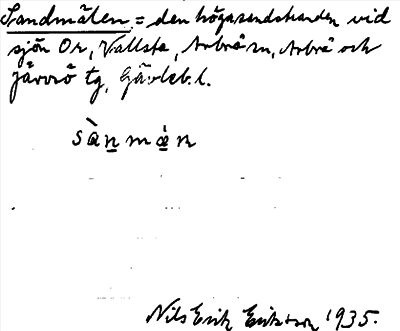 Sandmälen = den höga sandstranden vid
sjön Or, Vallsta, Arbrå sn, Arbrå och
Järvsö tg, Gävleb. l.
sànmæ̀n
Nils Erik Eriksson 1935.